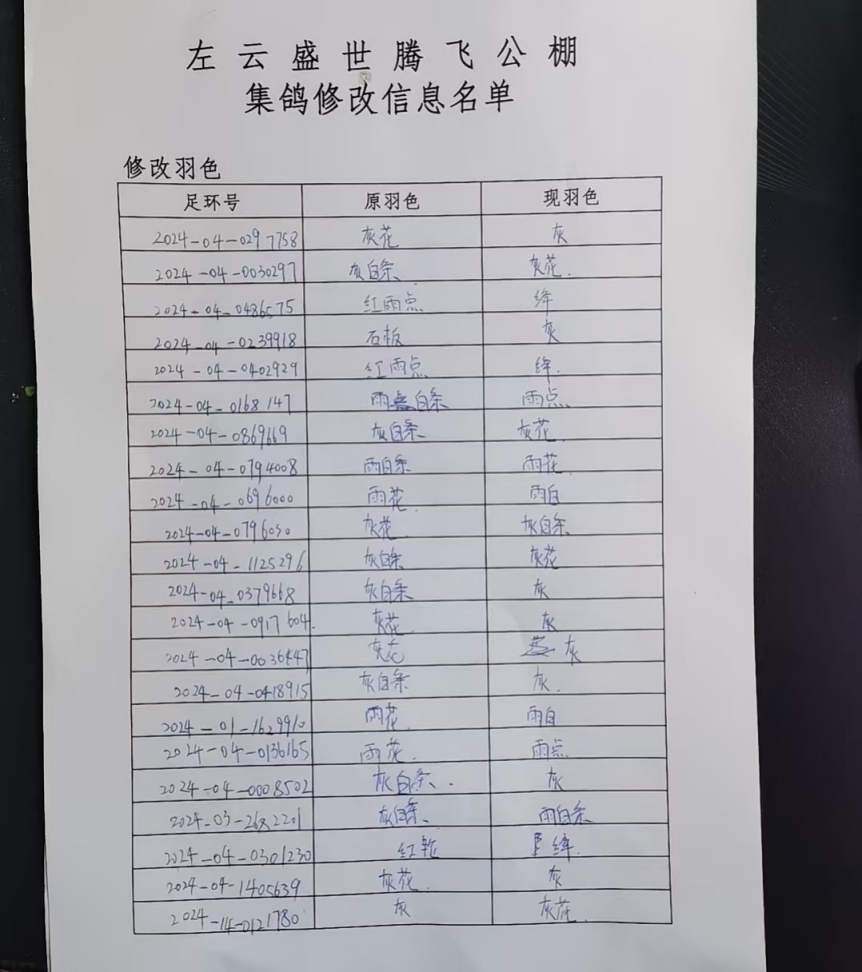 左云盛世腾飞公棚
集鸽修改信息名单
修改羽色
足环号 原羽色 现羽色
2024-04-0297758 灰花 灰
2024-04-0030297 灰白条 灰花.
2024-04-0486575 红雨点 绛
2024-04-0239918 石板 灰
2024-04-0402929 红雨点 绛.
2024-04-0168147 雨白条 雨点
2024-04-0869669 灰白条 灰花
2024-04-0794008 雨白条 雨花
2024-04-0696000 雨花 雨白
2024-04-0796050 灰花 灰白条
2024-04-1125296 灰白条 灰花
2024-04-0379668 灰白条 灰
2024-04-0917604. 灰花 灰
2024-04-0036447 灰花 灰
2024-04-0418915 灰白条 灰.
2024-01-1629910 雨花 雨白
2024-04-0136165 雨花. 雨点
2024-04-0008502 灰白条. 灰
2024-03-2682201 灰白条. 雨白条
2024-04-0301230 红轮 绛.
2024-04-1405639 灰花. 灰
2024-14-0121780 灰 灰花.